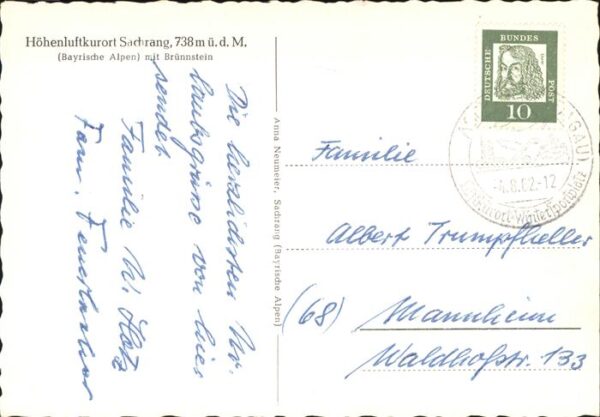 Höhenluftkurort Sachrang, 738 m ü. d. M.
(Bayrische Alpen) mit Brünnstein
Die herzlichsten Ur-
laubsgrüsse von hier
sendet
Familie W. Hotz
Fam.
Anna Neumeier, Sachrang (Bayrische Alpen)
DEUTSCHE BUNDES POST
10
-4.8.62-12
Familie
Albert Trumpfheller
(68) Mannheim
Waldhofstr. 133